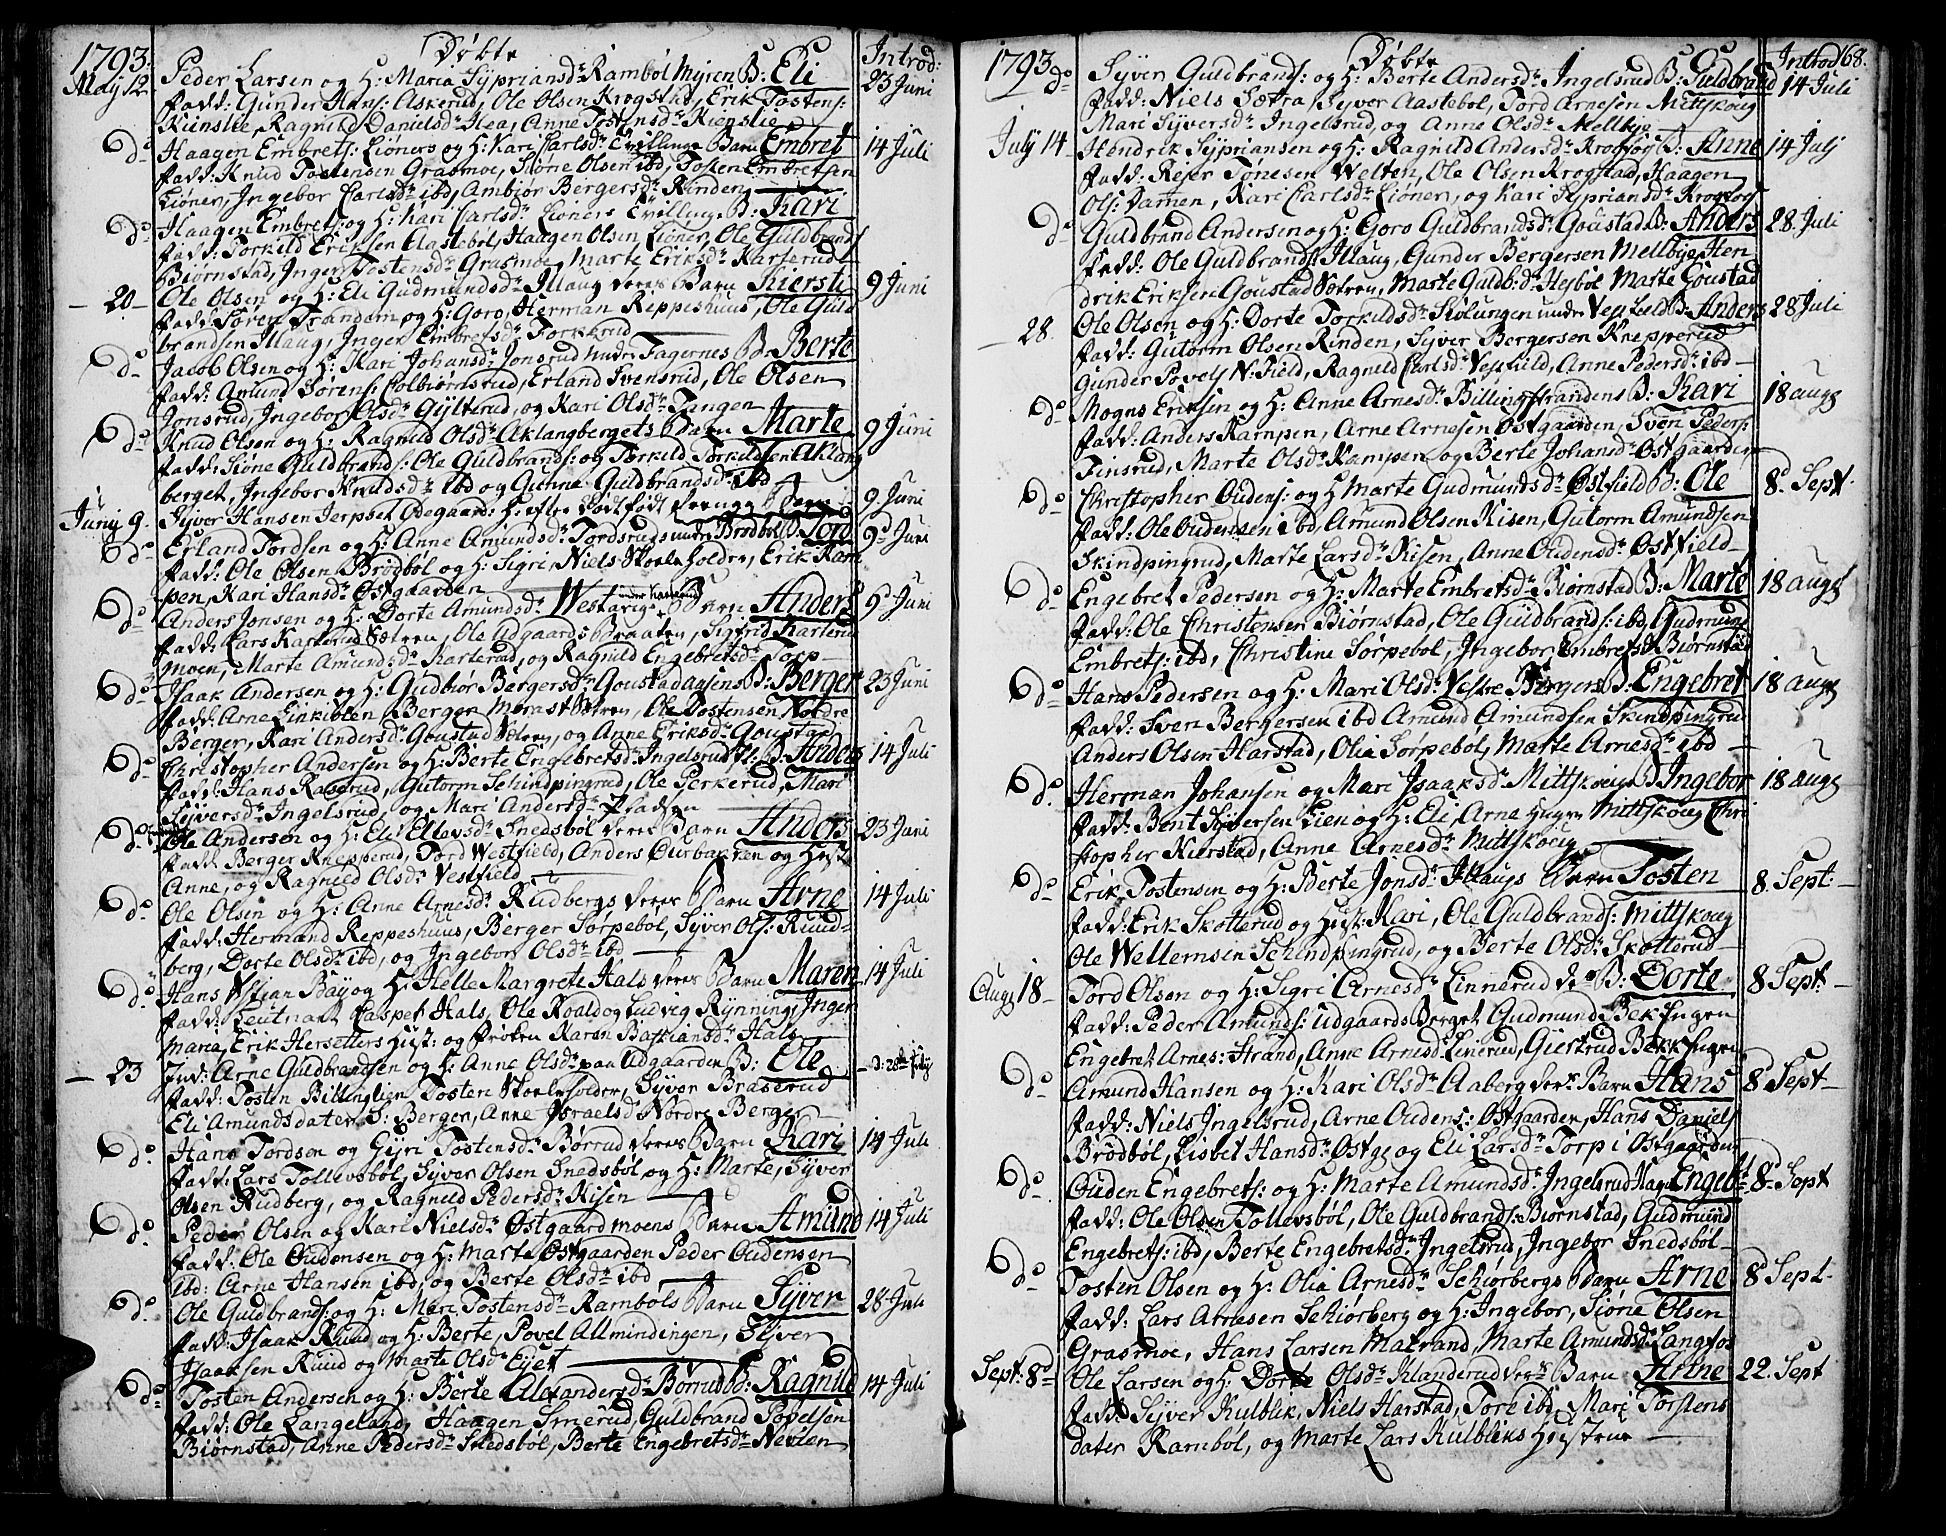 1793. Döbte Introd:
May 12 Peder Larsen og H: Maria Sypriansd: Rambøl Myren B: Eli 23 Juni
Fadd: Gunder Hans: Askerud, Ole Olsen Krogstad, Erik Tostens:
Kienslie, Ragnild Danielsd: Lea, Anne Tostensd: Kienslie
do Haagen Embrets: Lioners og H: Kari Carlsd: Tvillinge Barn Embret 14 Juli
Fadd: Knud Tostensen Grasmoe, Siøne Olsen ibd, Tosten Embretsen
Liøner, Ingebor Carlsd: ibd, Ambior Bergersd: Rinden
do Haagen Embrets: og H: Kari Carlsd: Lioners Tvillinge B: Kari
Fadd: Torkild Eriksen Aastebøl, Haagen Olsen Lioner, Ole Guldbrands
Biørnstad, Inger Tostensd: Grasmoe, Marte Eriksd: Karterud
20 Ole Olsen og H: Eli Gudmundsd: Illaug deres Barn Kiersti 9 Juni
Fadd: Søren Trandem og H: Goro, Herman Reppeshuus, Ole Guld
brandsen Illaug, Inger Embretsd: Torkerud
do Jacob Olsen og H: Kari Johansd: Jonsrud under Fagernes B: Berte
Fadd: Amund Sørens: Colbiørdsrud, Erland Svensrud, Ole Olsen
Jonsrud, Ingebor Olsd: Gylterud, og Kari Olsd: Tangen
do Knud Olsen og H: Ragnild Olsd: Aklangbergets Barn Marte 9 Juni
Fadd: Siøne Guldbrands: Ole Guldbrands: og Torkild Torkildsen Aklang
berget, Ingebor Knudsd: ibd og Gunne Guldbrandsd: ibd
Junij 9. Syver Hansen Jerpset Ødegaard: H: efter Dødfødt Drenge Barn 9 Juni
do Erland Tordsen og H: Anne Amundsd: Tordsruds under Brødbøl B: Tord 9 Juni
Fadd: Ole Olsen Brødbøl og H: Sigri, Niels Skoleholder, Erik Kam
pen, Kari Hansd: Østgaarden
do Anders Jonsen og H: Dorte Amundsd: Westarig under Karterud Barn Anders 9 Juni
Fadd: Lars Karterud Sætren, Ole Udgaards Braaten, Sigfrid Karterud
moen, Marte Amundsd: Karterud, og Ragnild Engebretsd: Torp
do Isaak Andersen og H: Gudbiør Bergersd: Goustad aasens B: Berger 23 Juni
Fadd: Arne Linkiblen, Berger Morast Sætren, Ole Tostensen Nordre
Berger, Kari Andersd: Goustad Sætren, og Anne Eriksd: Goustad
do Christopher Andersen og H: Berte Engebretsd: Ingelsrud B: Anders 14 Juli
Fadd: Hans Raserud, Gutorm Schindpingrud, Ole Perkerud, Mari
Syversd: Ingelsrud, og Mari Andersd:
do Ole Andersen og H: Eli Ellevsd: Snedsbøl deres Barn Anders 23 Juni
Fadd: Berger Knepperud, Tord Westfield, Anders Ourbakken og Hust:
Anne, og Ragnild Olsd: Vestfield
do Ole Olsen og H: Anne Arnesd: Rudbergs deres Barn Arne 14 Juli
Fadd: Hermand Reppeshuus, Berger Sørpebøl, Syver Ols: Ruud-
berg, Dorte Olsd: ibd, og Ingebor Olsd: ibd
do Hans Stian Bay og H: Helle Margrete Hals deres Barn Maren 14 Juli
Fadd: Leutnant Casper Hals, Ole Roald og Ludvig Rynning, Inger
Maria, Erik Hersetters Hust: og Frøken Karen Bastiansd: Hals
23 Ind: Arne Guldbrandsen og H: Anne Olsd: paa Udgaarden B: Ole d: 28de July
Fadd: Tosten Billinglien Tosten Skoleholder, Syver Braserud
Eli Amundsdater S: Berger, Anne Israelsd: Nordre Berger
do Hans Tordsen og Gyri Tostensd: Børrud deres Barn Kari 14 Juli
Fadd: Lars Tollevsbøl, Syver Olsen Snedsbøl og H: Marte, Syver
Olsen Rudberg, og Ragnild Pedersd: Kisen
do Peder Olsen og Kari Nielsd: Østgaard moens Barn Amund 14 Juli
Fadd: Ole Oudensen og H: Marte Østgaarden Peder Oudensen
ibd: Arne Hansen ibd, og Berte Olsd: ibd
do Ole Guldbrands: og H: Mari Tostensd: Rambøls Barn Syver 28 Juli
Fadd: Isaak Ruud og H: Berte, Povel Allmindingen, Syver
Isaaksen Ruud og Marte Olsd: Eyet
do Tosten Andersen og H: Berte Alexandersd: Børrud B: Ragnild 14 Juli
Fadd: Ole Langeland, Haagen Smerud, Guldbrand Povelsen
Biørnstad, Anne Pedersd: Snedsbøl, Berte Engebretsd: Nevlen
1793 Döbte Introd 168.
do Syver Guldbrands: og H: Berte Andersd: Ingelsrud B: Guldbrand 14 Juli
Fadd: Niels Sætra, Syver Aastebøl, Tord Arnesen Mittskoug
Mari Syversd: Ingelsrud, og Anne Olsd: Mellbye
July 14 Hendrik Sypriansen og H: Ragnild Andersd: Krogfos B: Anne 14 Julj
Fadd: Reier Tønesen Welten, Ole Olsen Krogstad, Haagen
Ols: Damen, Kari Carlsd: Liøner, og Kari Sypriansd: Krogfos
do Guldbrand Andersen og H: Goro Guldbrandsd: Goustad B: Anders 28 Juli
Fadd: Ole Guldbrands: Illaug, Gunder Bergersen Mellbye, Hen
drik Eriksen Goustad Sætren, Marte Guldb:d: Hesbøl Marte Goustad
28. Ole Olsen og H: Dorte Torkildsd: Skolungen under Vestfield B: Anders 28 Juli
Fadd: Gutorm Olsen Rinden, Syver Bergersen Knepperud
Gunder Povels: N: Field, Ragnild Carlsd: Vestfield, Anne Pedersd: ibd
do Mogns Eriksen og H: Anne Arnesd: Billingstrandens B: Kari 18 augs
Fadd: Anders Kampen, Arne Arnesen Østgaarden, Sven Peders:
Finsrud, Marte Olsd: Kampen og Berte Johansd: Østgaarden
do Christopher Oudens: og H: Marte Gudmundsd: Østfield B: Ole 8. Sept
Fadd: Ole Oudensen ibd, Amund Olsen Kisen, Gutorm Amundsen
Skindpingrud, Marte Larsd: Kisen, Anne Oudensd: Østfield
do Engebret Pedersen og H: Marte Embretsd: Biørnstad B: Marte 18 augs
Fadd: Ole Christensen Biørnstad, Ole Guldbrands: ibd, Gudmund
Embrets: ibd, Christine Sørpebøl, Ingebor Embretsd: Biørnstad
do Hans Pedersen og H: Mari Olsd: Vestre Bergers B: Engebret 18 augs
Fadd: Sven Bergersen ibd Amund Amundsen Skindpingrud
Anders Olsen Harstad, Olia Sørpebøl, Marte Arnesd: ibd
do Herman Johansen og Mari Isaaksd: Mittskouig B: Ingebor 18 augs
Fadd: Bent Syversen Lien og H: Eli, Arne Mittskoug Chri
stopher Kierstad, Anne Arnesd: Mittskoug
do Erik Tostensen og H: Berte Jonsd: Illaugs Barn Tosten 8. Sept:
Fadd: Erik Skotterud og Hust: Kari, Ole Guldbrands: Mittskoug
Ole Wellemsen Schindpingrud, og Berte Olsd: Skotterud
Augs 18 Tord Olsen og H: Sigri Arnesd: Linnerud ds B: Dorte 8 Sept:
Fadd: Peder Amunds: Udgaards Berget Gudmund Bek Ingen
Engebret Arnes: Strand, Anne Arnesd: Linerud, Giertrud Bekk Ingen
do Amund Hansen og H: Kari Olsd: Aaberg ders Barn Hans 8 Sept
Fadd: Niels Ingelsrud, Arne Oudens: Østgaarden, Hans Daniels
Brødbøl, Lisbet Hansd: Østg: og Eli Larsd: Torp i Østgaarden
do Ouden Engebrets: og H: Marte Amundsd: Ingelsrud Hagen Engebt 8 Sept
Fadd: Ole Olsen Tollevsbøl, Ole Guldbrands: Biørnstad, Gudmund
Engebrets: ibd, Berte Engebretsd: Ingelsrud, Ingebor Snedsbøl
do Tosten Olsen og H: Olia Arnesd: Schiørbergs Barn Arne 8 Sept
Fadd: Lars Arnesen Schiørberg og H: Ingebor, Siøne Olsen
Grasmoe, Hans Larsen Matrand, Marte Amundsd: Langfos
Sept: 8 Ole Larsen og H: Dorte Olsd: Klanderud ders Barn Arne 22. Sept
Fadd: Syver Kulblik, Niels Harstad, Tore ibd, Mari Torstens
dater Rambøl, og Marte Lars Kulbliks Hustrue